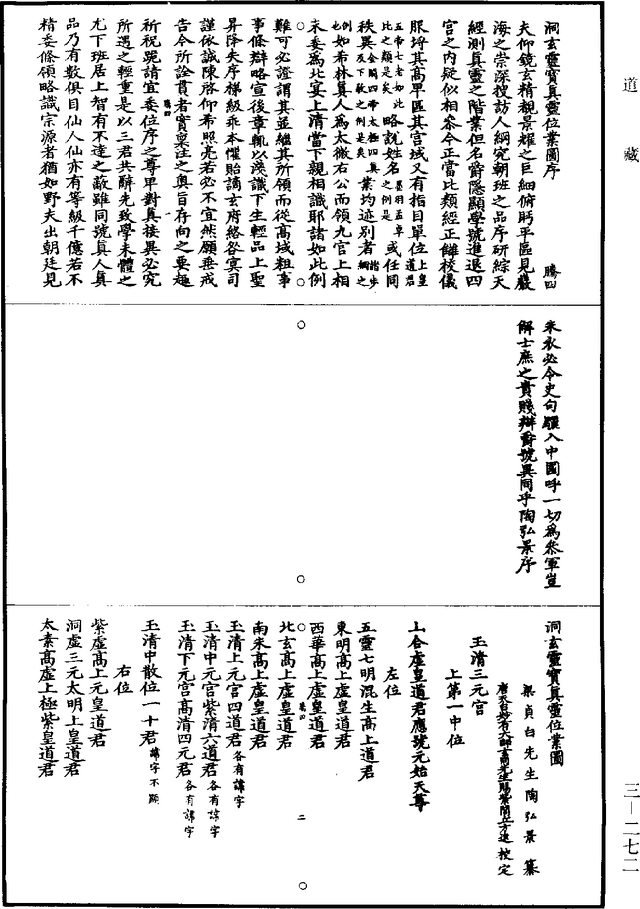 道藏
洞玄靈寶真靈位業圖序
騰四
夫仰鏡玄精覩景耀之巨細俯眄平區見巖
海之崇深搜訪人綱究朝班之品序研綜天
經測真靈之階業但名爵隱顯學號進退四
宮之內疑似相參今正當比類經正讎校儀
服埒其高卑區其宮域又有指目單位上皇道君
五帝七老如此比之類是矣略說姓名墨羽孟卓之例是矣或任同
秩異金闕四帝太極四真及下教之例是矣業均迹別者諸步綱之
例也如希林真人為太微右公而領九宮上相
未委為北宴上清當下親相識耶諸如此例
難可必證謂其並繼其所領而從高域粗事
事條辯略宣後章輒以淺識下生輕品上聖
昇降失序梯級乖本懼貽謫玄府絡咎冥司
謹依誠陳啓仰希照亮若必不宜然願垂戒
告今所詮貫者實稟注之奧旨存向之要趣
祈祝跪請宜委位序之尊卑對真接異必究
所遇之輕重是以三君共辭先致學未體之
尤下班居上智有不達之敵雖同號真人真
品乃有數俱目仙人仙亦有等級千億若不
精委條領略識宗源者猶如野夫出朝廷見
朱衣必令史句驪入中國呼一切為參軍豈
解士庶之貴賤辯爵號異同乎陶弘景序
洞玄靈寶真靈位業圖
梁貞白先生陶弘景纂
唐天台妙有大師玄同先生賜紫閭丘方遠校定
玉清三元宮
上第一中位
上合虛皇道君應號元始天尊
左位
五靈七明混生高上道君
東明高上虛皇道君
西華高上虛皇道君
北玄高上虛皇道君
南朱高上虛皇道君
玉清上元宮四道君各有諱字
玉清中元宮紫清六道君各有諱字
玉清下元宮高清四元君各有諱字
玉清中散位一十君諱字不顯
右位
紫虛高上元皇道君
洞虛三元太明上皇道君
太素高虛上極紫皇道君
三—二七二